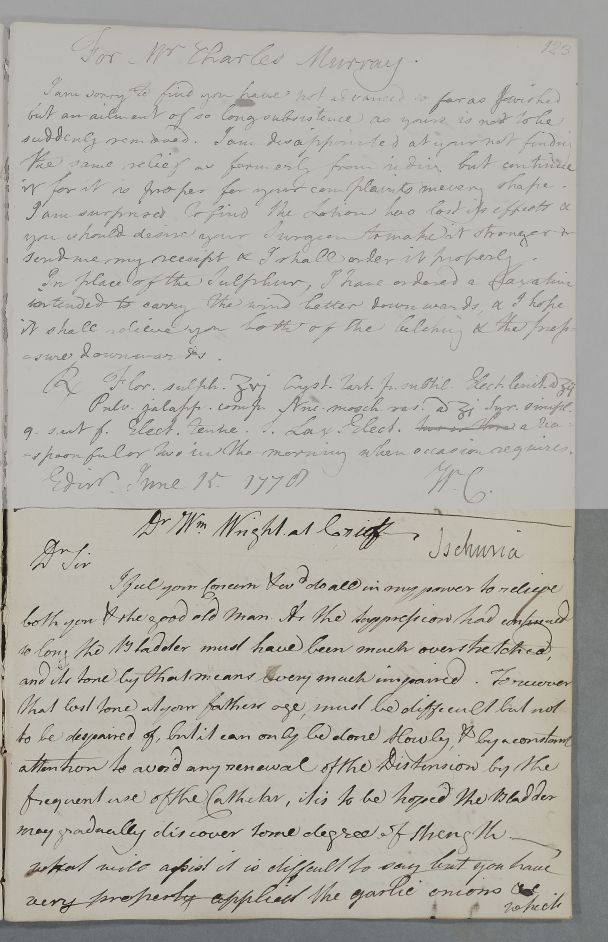 123
For Mr Charles Murray.
I am sorry to find you have not advanced so far as I wished
but an ailment of so long subsistence as yours is not to be
suddenly removed. I am disappointed at your not finding
the same relief as formerly from riding but continue
it for it is proper for your complaints in every shape.
I am surprised to find the Lotion has lost its effects &
you should desire your Surgeon to make it stronger or
send me my receipt & I shall order it properly.
In place of the Sulphur, I have ordered a Laxative
intended to carry the wind better downwards, & I hope
it shall relieve you both of the belching & the press-
-sure downwards.
℞ Flor. sulph. ʒvj Cryst. Tart. pr. subtil. Elect. lenit. a ʒij
Pulv. jalapp. comp. Nuc. mosch. ras. a ʒj Syr. simpl.
q. s. ut f. Elect. Lax. Elect. a Tea-
-spoonful or two in the morning when occasion requires.
Edinr. June 15 1778 W. C.
Dr Wm Wright at Crieff
Ischuria
Dr Sir
I feel your Concern & wd do all in my power to relieve
both you & the good old man. As the suppression had continued
so long the Bladder must have been much overstretched,
and its tone by that means very much impaired. To recover
that lost tone at your fathers age, must be difficult but not
to be despaired of, but it can only be done slowly, & by a constant
attention to avoid any renewal of the Distension by the
frequent use of the Catheter, it is to be hoped the Bladder
may gradually discover some degree of strength
what will assist it is difficult to say but you have
very properly applied the garlic onions &c
which